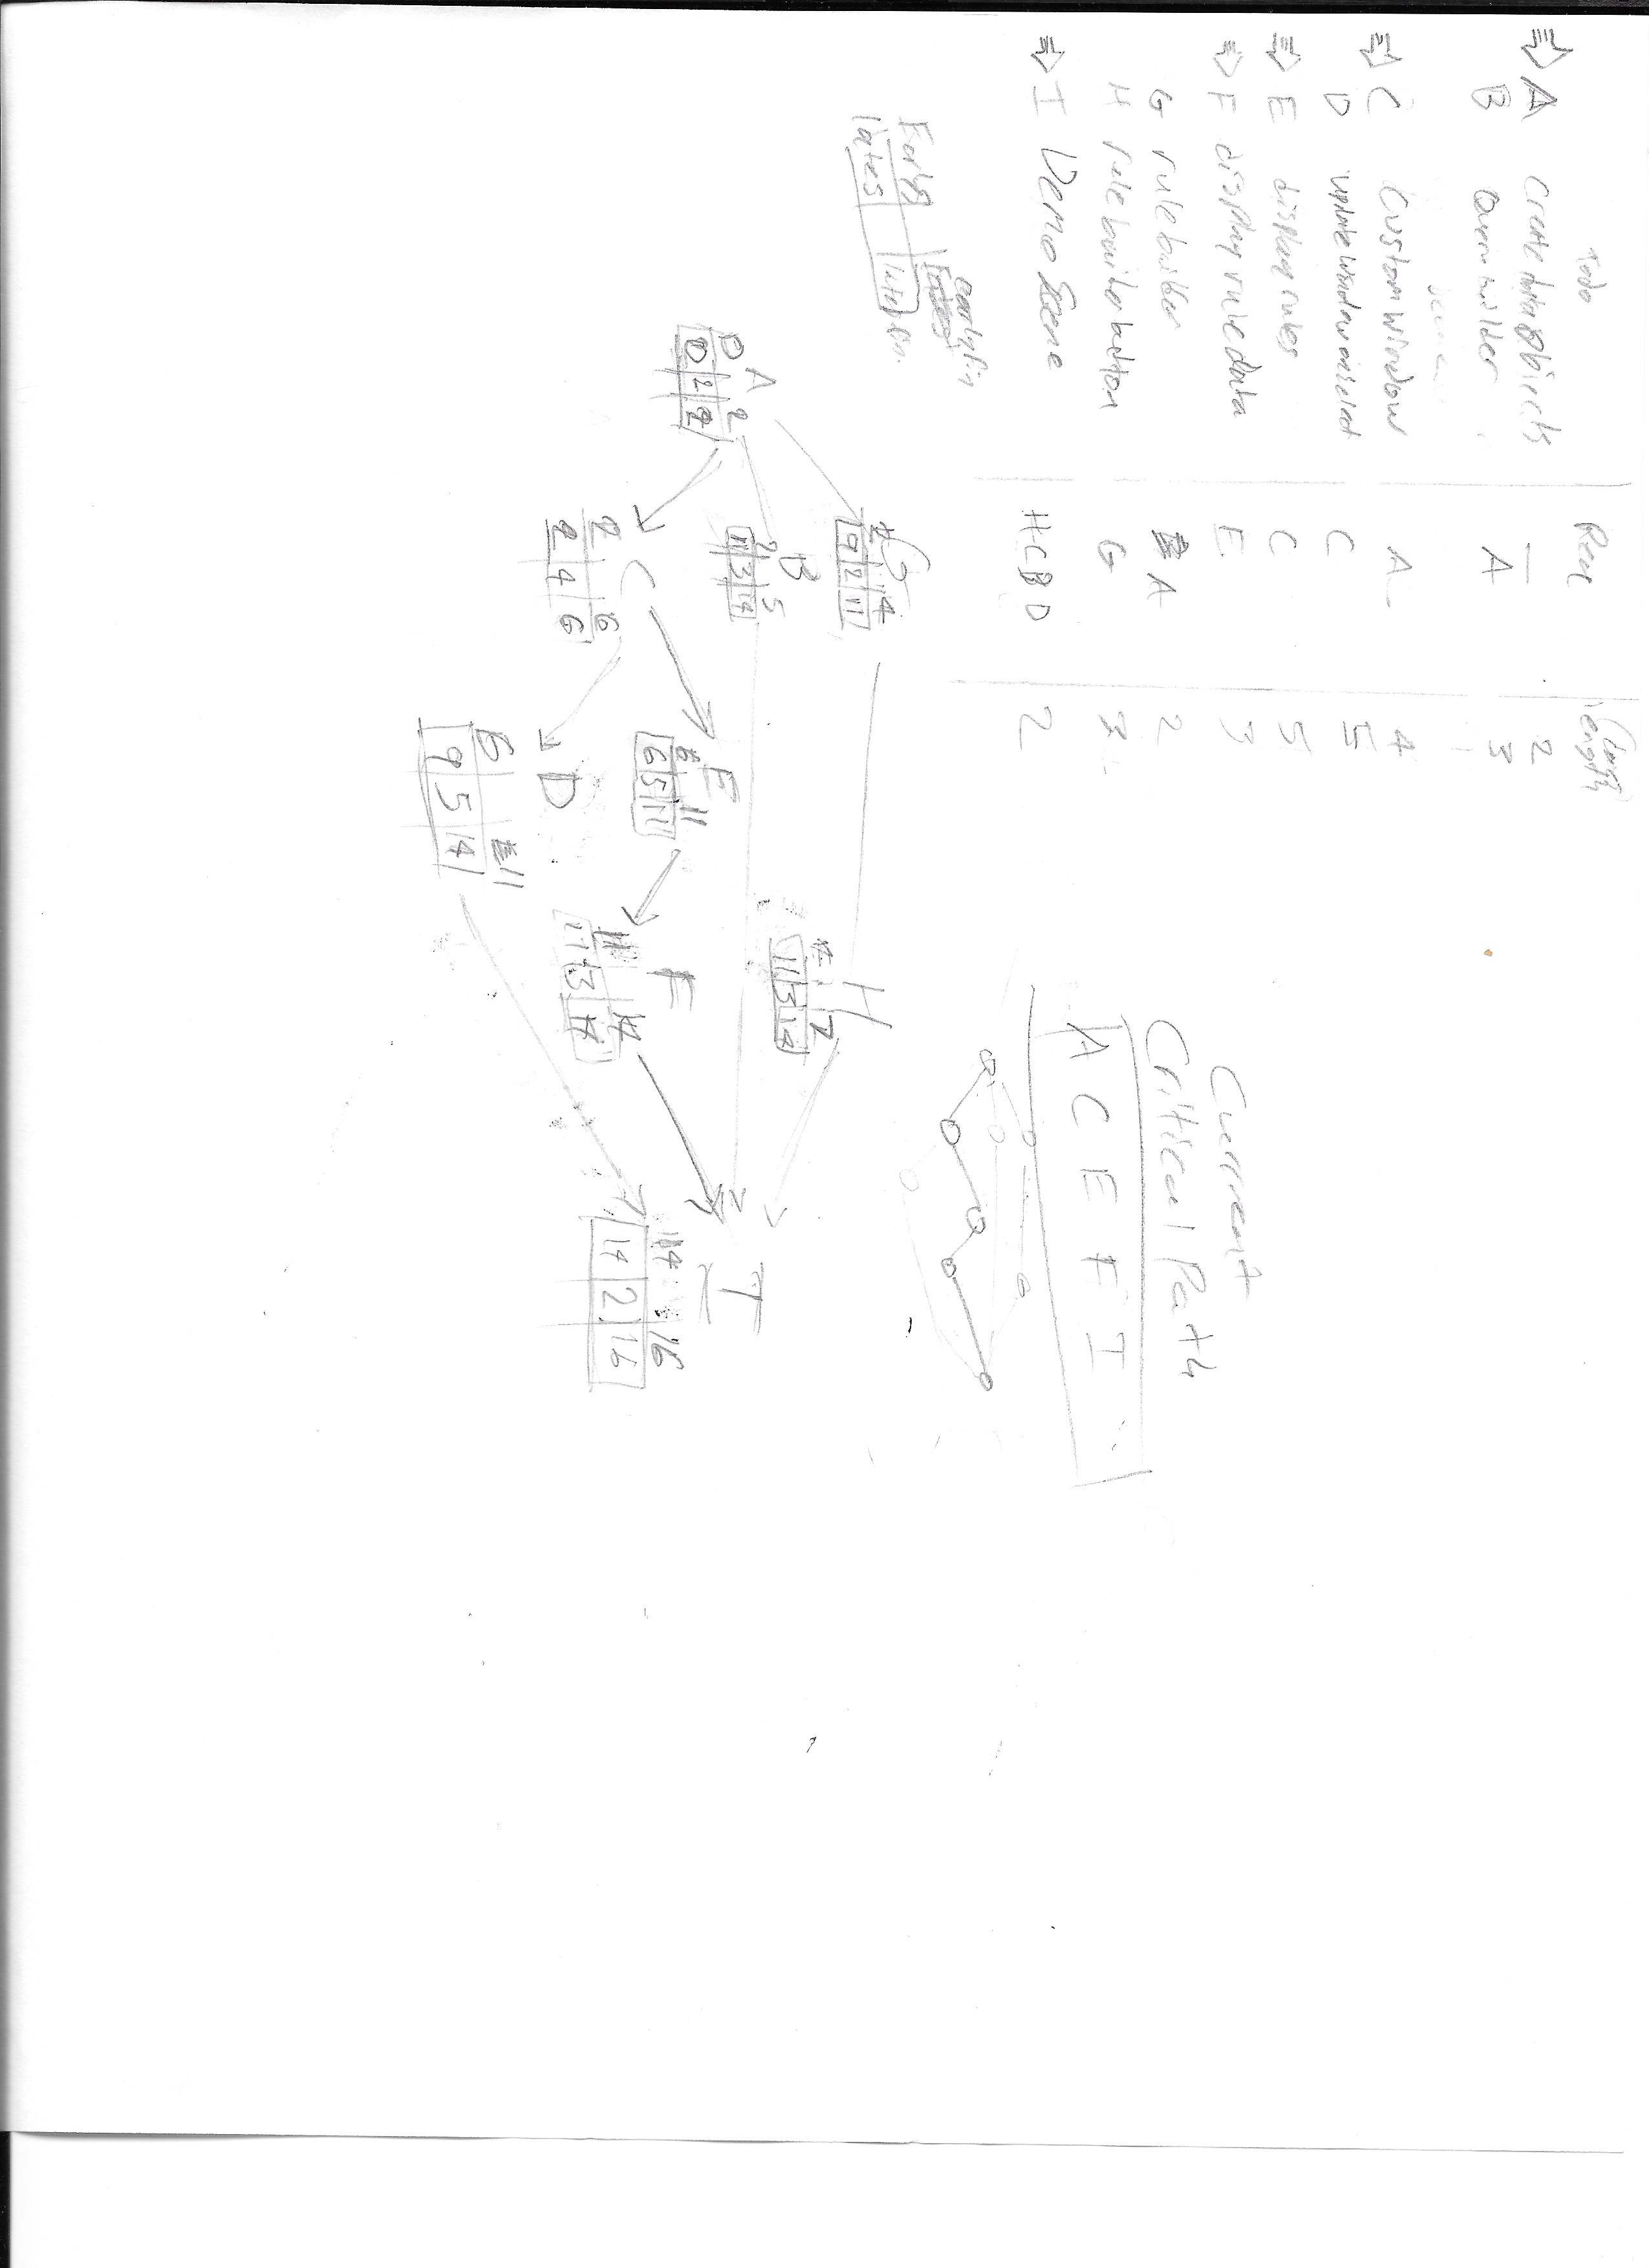 Todo Req length
A Create data objects — 2
B Query builder A 3
1
C Custom Window A 4
D update window on select C 5
E display rules C 5
F display rule data E 3
G rule builder A 2
H rule builder button G 3
I Demo Scene H C B D 2
Current
Critical Path
A C E F I
early fin
Early s
late s late fin.
G
2 4
9 2 11
H
4 7
11 3 14
B
2 5
11 3 14
A
0 2
0 2 2
E
6 11
6 5 11
I
14 16
14 2 16
F
11 14
11 3 14
C
2 6
2 4 6
D
6 11
9 5 14